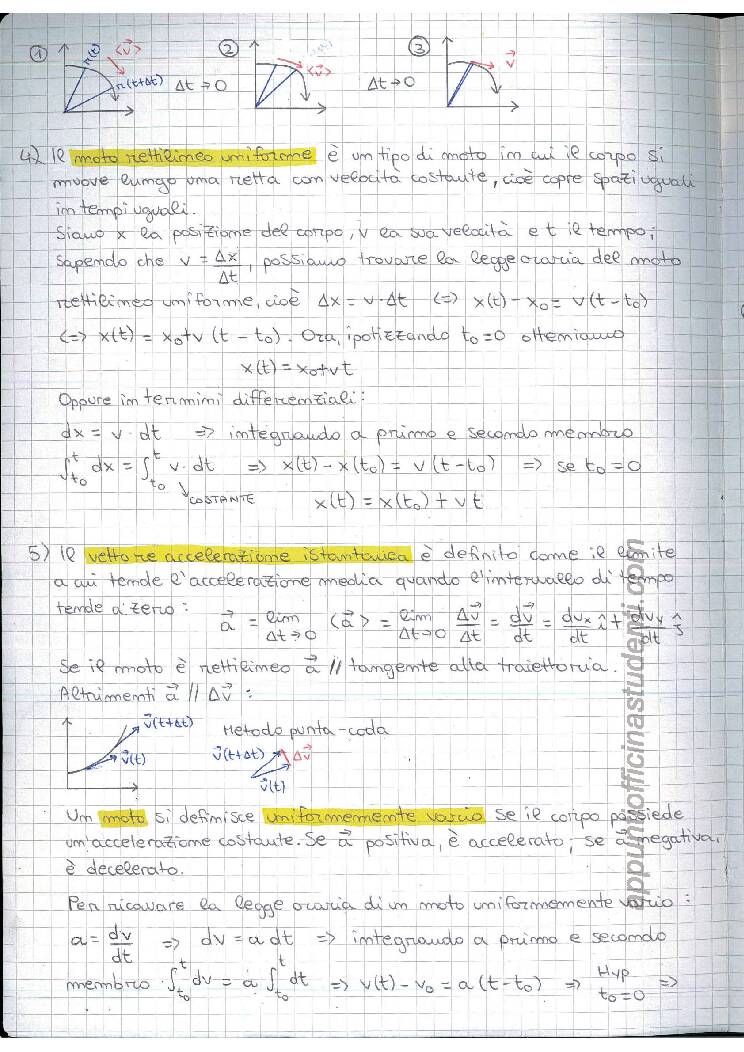 ① r(t) <v⃗> r(t+Δt) Δt → 0 ② r(t) <v⃗> Δt → 0 ③ v⃗
4) Il moto rettilineo uniforme è un tipo di moto in cui il corpo si
muove lungo una retta con velocità costante, cioè copre spazi uguali
in tempi uguali.
Siano x la posizione del corpo, v la sua velocità e t il tempo;
Sapendo che v = Δx/Δt, possiamo trovare la legge oraria del moto
rettilineo uniforme, cioè Δx = v·Δt <=> x(t) - x₀ = v(t - t₀)
<=> x(t) = x₀+v (t - t₀). Ora, ipotizzando t₀=0 otteniamo
x(t) = x₀+vt
Oppure in termini differenziali:
dx = v · dt => integrando a primo e secondo membro
∫_{t₀}^{t} dx = ∫_{t₀}^{t} v· dt => x(t) - x(t₀) = v (t-t₀) => se t₀ = 0
COSTANTE x(t) = x(t₀) + vt
5) Il vettore accelerazione istantanica è definito come il limite
a cui tende l'accelerazione media quando l'intervallo di tempo
tende a zero: a⃗ = lim_{Δt→0} <a⃗> = lim_{Δt→0} Δv⃗/Δt = dv⃗/dt = dvx/dt î + dvy/dt ĵ
Se il moto è rettilineo a⃗ // tangente alla traiettoria.
Altrimenti a⃗ // Δv⃗ :
v⃗(t+Δt) Metodo punta-coda
v⃗(t) v⃗(t+Δt) Δv⃗
v⃗(t)
Un moto si definisce uniformemente vario se il corpo possiede
un'accelerazione costante. Se a⃗ positiva, è accelerato, se a⃗ negativa,
è decelerato.
Per ricavare la legge oraria di un moto uniformemente vario :
a = dv/dt => dv = a dt => integrando a primo e secondo
membro ∫_{t₀}^{t} dv = a ∫_{t₀}^{t} dt => v(t) - v₀ = a (t-t₀) => Hyp t₀=0 =>
appuntiofficinastudenti.com